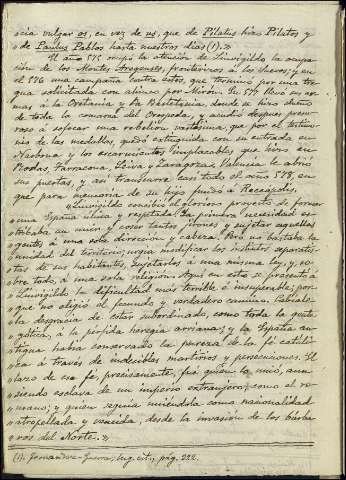 »cia vulgar os, en vez de us, que de Pilatus hizo Pilatos y
»de Paulus Pablos hasta nuestros dias (1).»
El año 575 ocupó la atención de Leuvigildo la ocupa-
ción de los Montes Aregenses, fronterizos á los Suevos; y en
el 576 una campaña contra estos, que terminó por una tre-
gua solicitada con ahinco por Mirón. En 577 llevó sus ar-
mas á la Oretania y la Bastitania, donde se hizo dueño
de toda la comarca del Orospeda, y acudió despues presu-
roso á sofocar una rebelion, que por el testimo-
nio de las medallas, quedó extinguida con su entrada en
Narbona y los escarmientos implacables que hizo en
Rodas, Tarracona, y Zaragoza; Valencia le abrió
sus puertas, y asi transcurre casi todo el año 578, en
que para memoria de su hijo fundó á Reccopolis.
»Leuvigildo concibió el glorioso proyecto de formar
»una España única y respetada. La primera necesidad es-
»tribaba en unir y coser tantos jirones y sujetar aquellas
»gentes á una sola direccion y cabeza. Pero no bastaba la
»unidad del territorio; urgia modificar los instintos separatis-
»tas de sus habitantes, sujetarlos á una misma ley, y, so-
»bre todo, á una sola religion. Aqui en esto se presentó á
»Leuvigildo la dificultad más terrible é insuperable; por-
»que no eligió el fecundo y verdadero camino. Cabiale
»la desgracia de estar subordinado, como toda la gente
»gótica, á la pérfida heregia arriana; y la España an-
»tigua habia conservado la pureza de la fé católi-
»ca á través de indecibles martirios y persecuciones. El
»lazo de esa fé, precisamente, fué quien la unió, aun
»siendo esclava de un imperio extranjero, como el ro-
»mano; y quien seguia uniéndola como nacionalidad
»atropellada y vencida, desde la invasion de los bárba-
»ros del Norte.»
(1). Fernandez-Guerra, lug. cit., pág. 222.